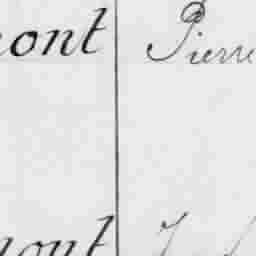 ont Pierre
ont